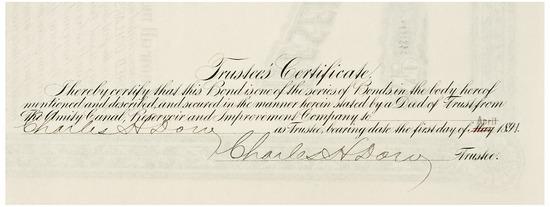 Trustee's Certificate.
I hereby certify that this Bond is one of the series of Bonds in the body hereof
mentioned and described, and secured in the manner herein stated by a Deed of Trust from
The Amity Canal, Reservoir and Improvement Company to
Charles H Dow as Trustee, bearing date the first day of May April 1891.
Charles H Dow Trustee.